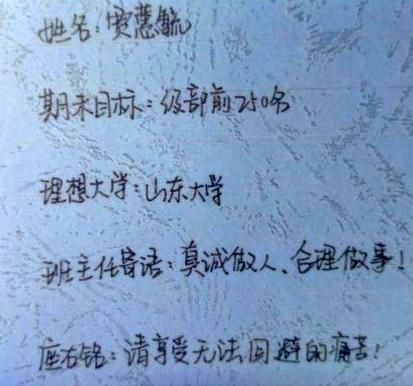 姓名：贾慧毓
期末目标：级部前250名
理想大学：山东大学
班主任寄语：真诚做人、合理做事！
座右铭：请享受无法回避的痛苦！